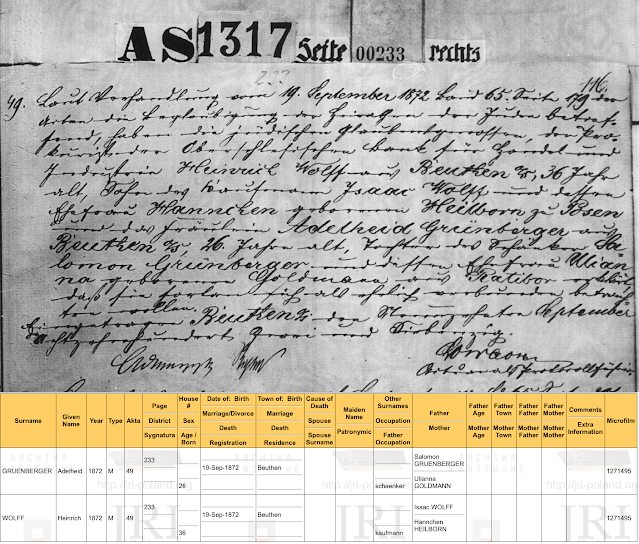 AS 1317 Seite 00233 rechts
233 116.
49. Laut Verhandlung vom 19. September 1872 Band 65. Seite 179 der
Akten die Beglaubigung der Heirathen der Juden betref-
fend, haben die jüdischen Glaubensgenossen, der Pro-
kurist der Oberschlesischen Bank für Handel und
Industrie Heinrich Wolff aus Beuthen O/S, 36 Jahr
alt Sohn des Kaufman Isaac Wolff und dessen
Ehefrau Hannchen geborenen Heilborn zu Posen
und das Fräulein Adelheid Grünberger aus
Beuthen O/S, 26 Jahre alt, Tochter des Schänker Sa-
lomon Grünberger und dessen Ehefrau Ulian-
na geborene Goldmann aus Ratibor erklärt
daß sie fortan sich als ehelich verbunden betrach-
ten wollen.
Eingetragen Beuthen O/S den Neunzehnten September
Achtzehnhundert zwei und Siebenzig.
Surname Given Name Year Type Akta Page District Sygnatura House # Sex Age / Born Date of: Birth Marriage/Divorce Death Registration Town of: Birth Marriage Death Residence Cause of Death Spouse Spouse Surname Maiden Name Patronymic Other Surnames Occupation Father Occupation Father Mother Father Age Mother Age Father Town Mother Town Father Father Mother Father Father Mother Mother Mother Comments Extra Information Microfilm
GRUENBERGER Adelheid 1872 M 49 233 26 19-Sep-1872 Beuthen schaenker Salomon GRUENBERGER Ulianna GOLDMANN 1271495
WOLFF Heinrich 1872 M 49 233 36 19-Sep-1872 Beuthen kaufmann Isaac WOLFF Hannchen HEILBORN 1271495